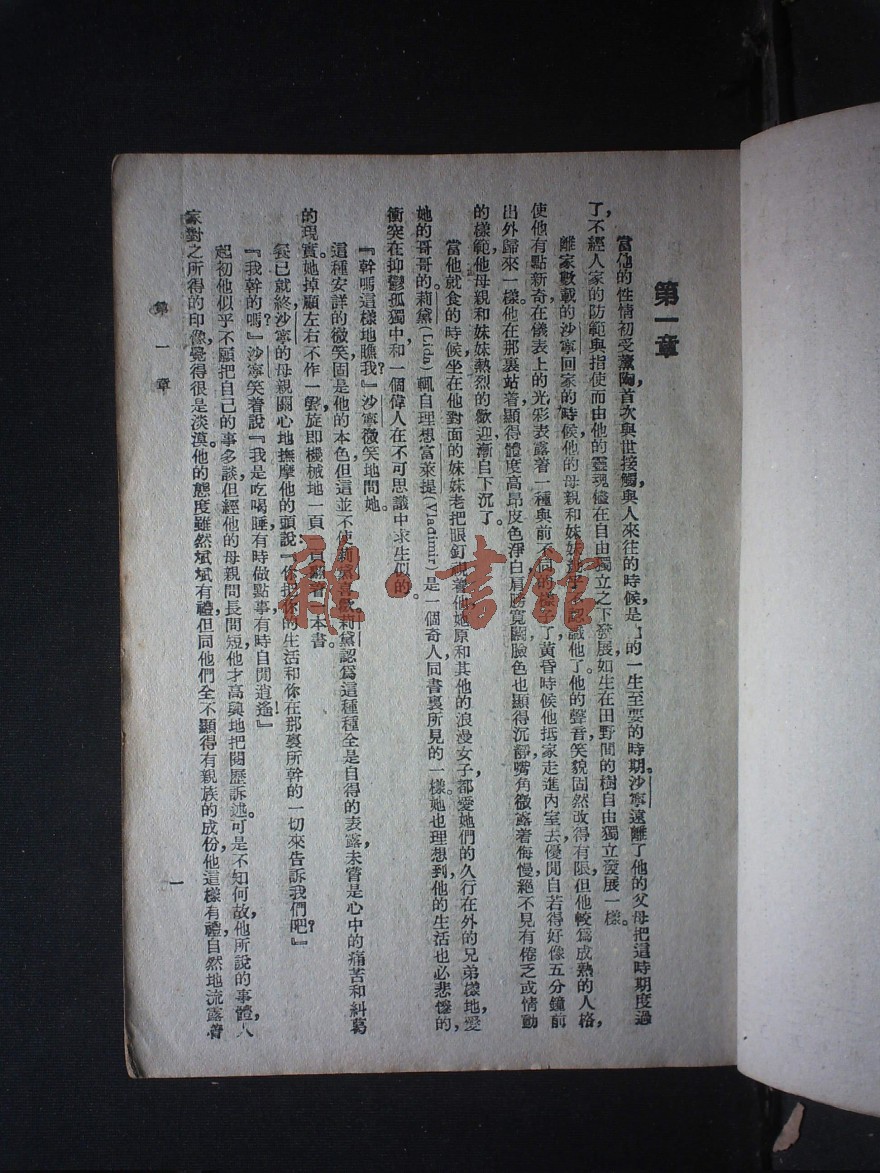 第一章
當他的性情初受薰陶，首次與世接觸，與人來往的時候，是他的一生至要的時期。沙寧遠離了他的父母把這時期度過
了，不經人家的防範與指使而由他的靈魂儘在自由獨立之下發展，如生在田野間的樹自由獨立發展一樣。
離家數載的沙寧回家的時候，他的母親和妹妹幾乎不認識他了。他的聲音笑貌固然改得有限，但他較爲成熟的人格，
使他有點新奇，在儀表上的光彩表露着一種與前不同的樣子了。黃昏時候他抵家，走進內室去，優閒自若得好像五分鐘前
出外歸來一樣。他在那裏站着，顯得體度高昂，皮色淨白，肩膀寬闊，臉色也顯得沉靜，嘴角微露着侮慢，絕不見有倦乏或情動
的樣範，他母親和妹妹熱烈的歡迎，漸自下沉了。
當他就食的時候，坐在他對面的妹妹，老把眼釘視着他。她原和其他的浪漫女子，都愛她們的久行在外的兄弟樣地，愛
她的哥哥的。莉黛(Lida)輒自理想富萊提(Vladimir)是一個奇人，同書裏所見的一樣。她也理想到他的生活也必悲慘的，
衝突在抑鬱孤獨中，和一個偉人在不可思議中求生似的。
『幹嗎這樣地瞧我？』沙寧微笑地問她。
這種安詳的微笑固是他的本色，但這並不使莉黛喜歡。莉黛認爲這種種全是自得的表露，未嘗是心中的痛苦和糾葛
的現實。她掉顧左右不作一聲，旋即機械地一頁一頁翻着一本書。
餐已就終，沙寧的母親關心地撫摩他的頭說：『你把你的生活和你在那裏所幹的一切來告訴我們吧？』
『我幹的嗎？』沙寧笑着說，『我是吃喝睡，有時做點事，有時自閒逍遙！』
起初他似乎不願把自己的事多談，但經他的母親問長問短，他才高興地把閱歷訴述。可是不知何故，他所說的事體，人
家對之所得的印像，覺得很是淡漠。他的態度雖然斌斌有禮，但同他們全不顯得有親族的成份。他這樣有禮，自然地流露着
第一章
一
雜·書館